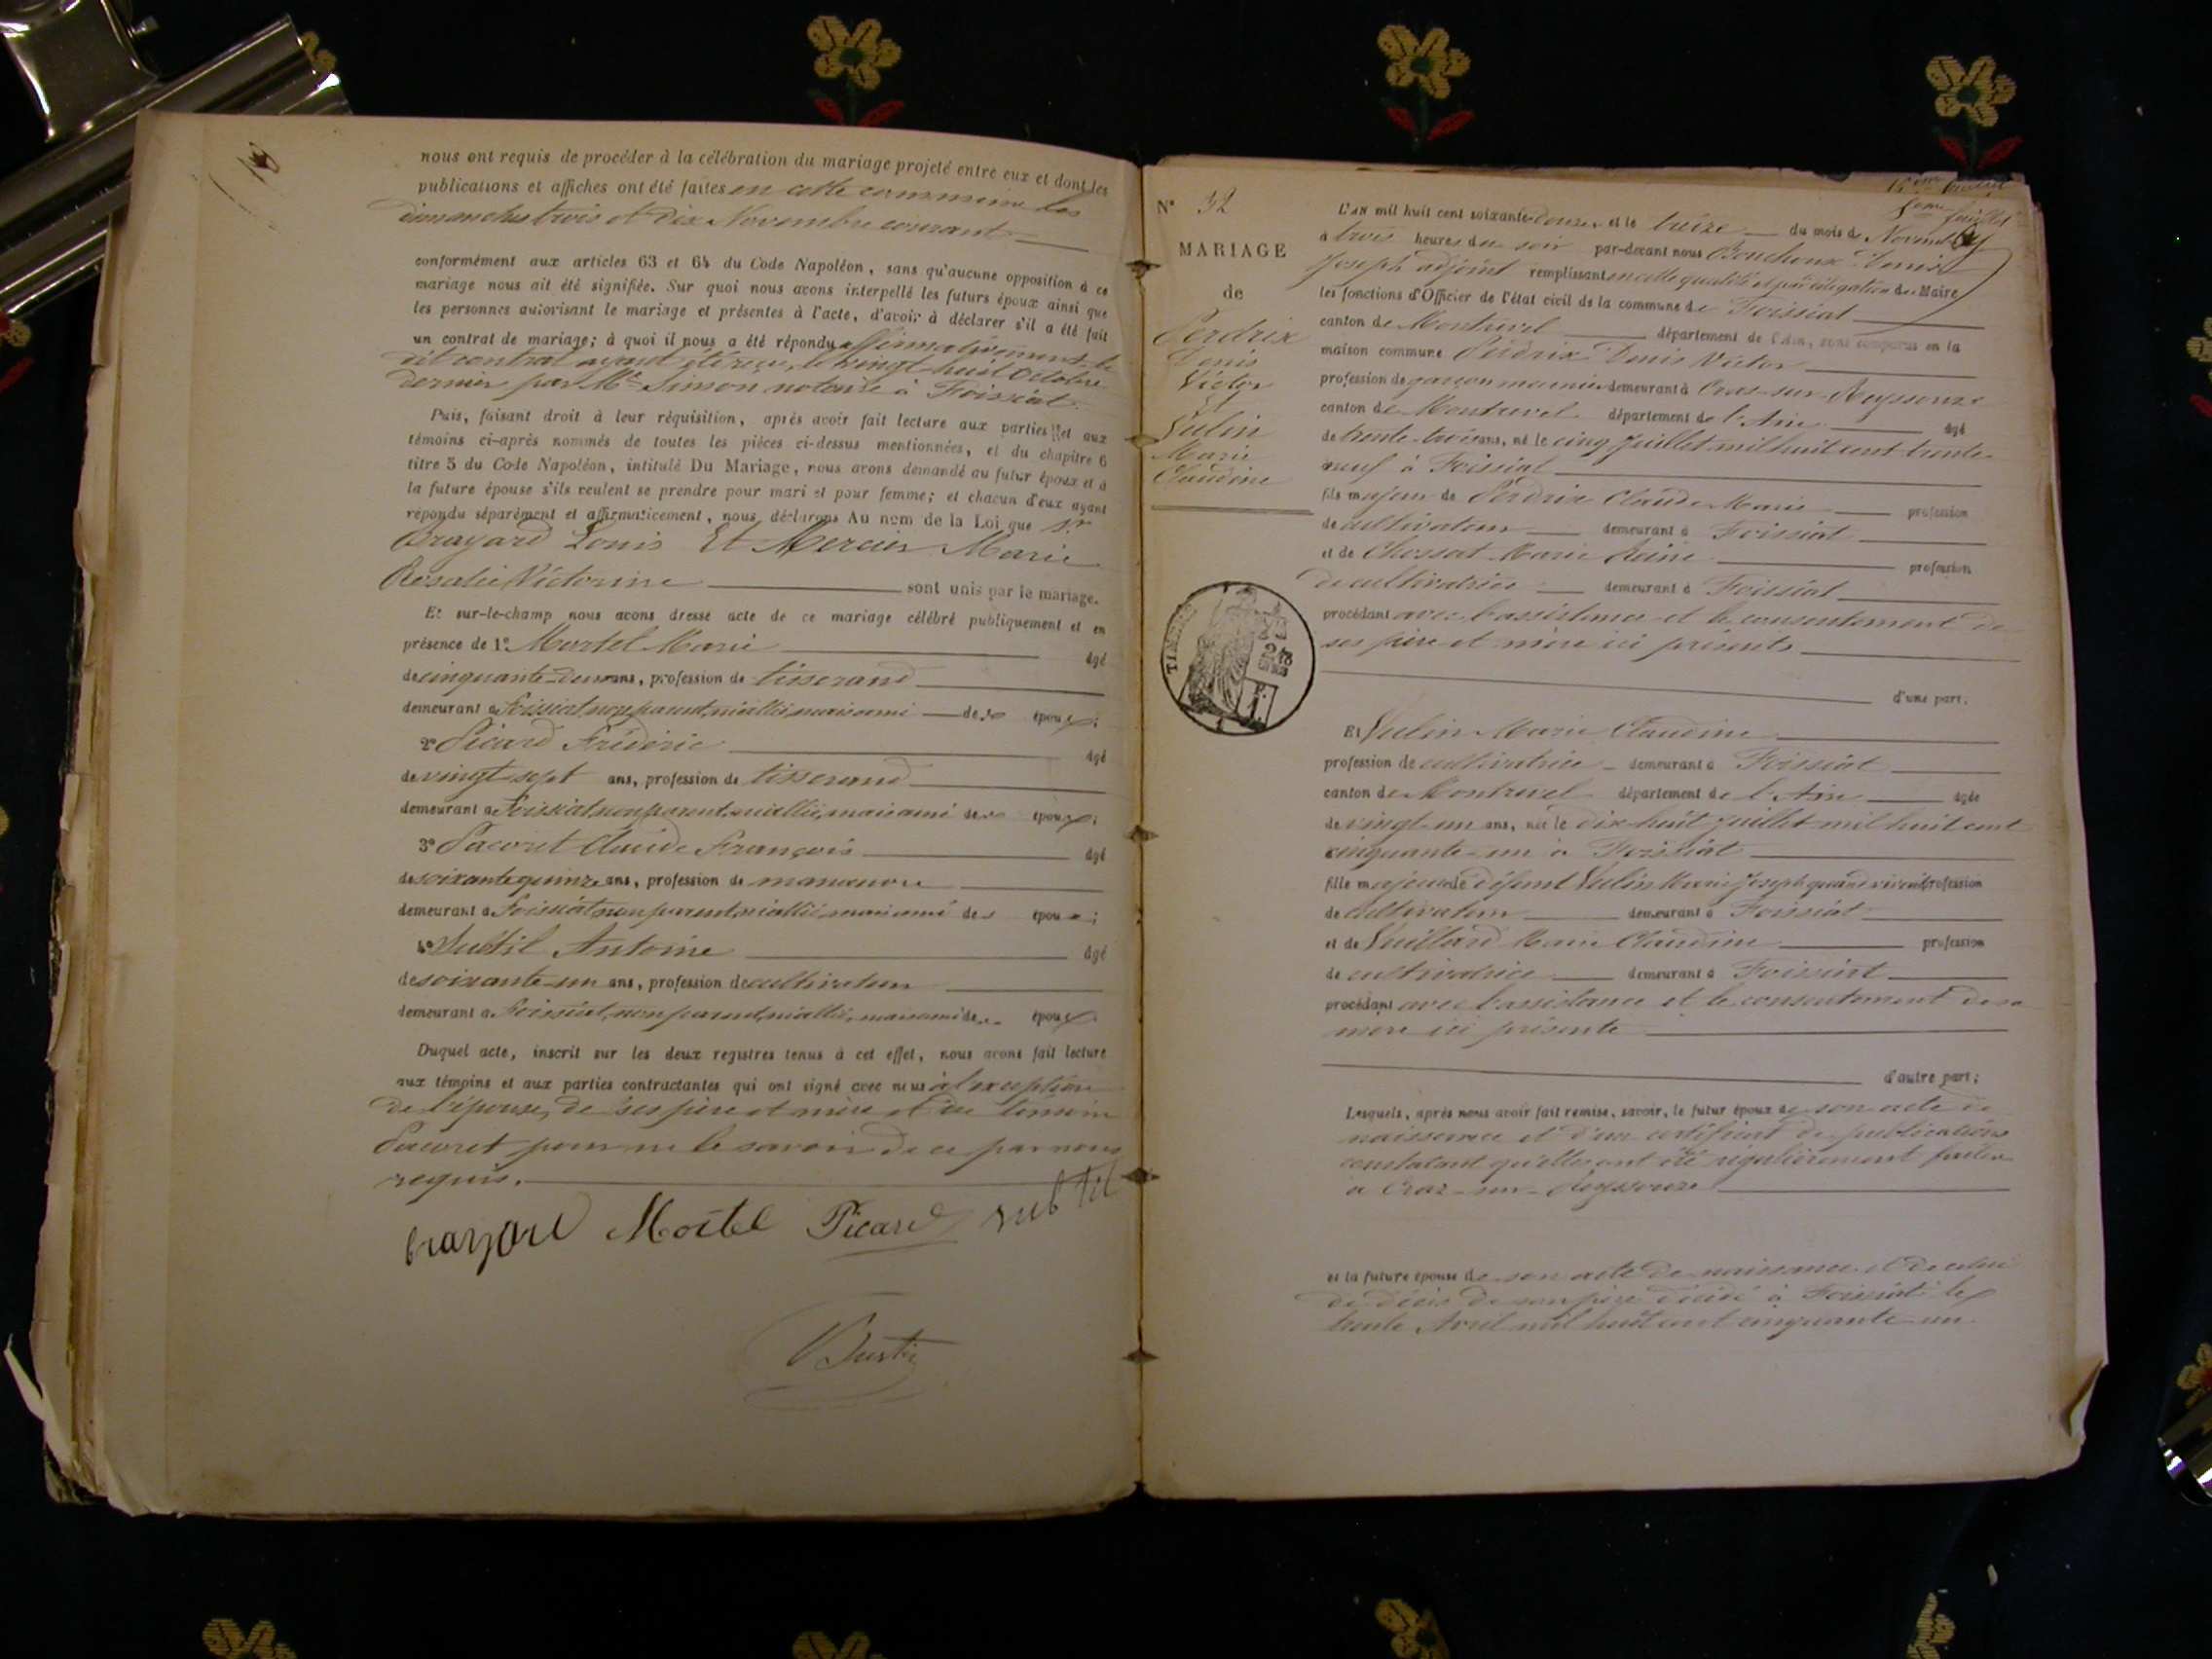 nous ont requis de procéder à la célébration du mariage projeté entre eux et dont les
publications et affiches ont été faites en cette commune les
dimanches trois et dix Novembre courant
conformément aux articles 63 et 64 du Code Napoléon, sans qu'aucune opposition à ce
mariage nous ait été signifiée. Sur quoi nous avons interpellé les futurs époux ainsi que
les personnes autorisant le mariage et présentes à l'acte, d'avoir à déclarer s'il a été fait
un contrat de mariage; à quoi il nous a été répondu affirmativement le
dit contrat ayant été reçu, le vingt huit Octobre
dernier par Me Simon notaire à Foissiat.
Puis, faisant droit à leur réquisition, après avoir fait lecture aux parties et aux
témoins ci-après nommés de toutes les pièces ci-dessus mentionnées, et du chapitre 6
titre 5 du Code Napoléon, intitulé Du Mariage, nous avons demandé au futur époux et à
la future épouse s'ils veulent se prendre pour mari et pour femme; et chacun d'eux ayant
répondu séparément et affirmativement, nous déclarons Au nom de la Loi que Sr
Brayard Louis Et Mercier Marie
Rosalie Victorine sont unis par le mariage.
Et sur-le-champ nous avons dressé acte de ce mariage célébré publiquement et en
présence de 1° Mortel Marie âgé
de cinquante-deux ans, profession de tisserand
demeurant à Foissiat, non parent, ni allié mais ami des époux;
2° Picard Fréderic âgé
de vingt-sept ans, profession de tisserand
demeurant à Foissiat, non parent, ni allié, mais ami des époux;
3° Pacoret Claude François âgé
de soixante quinze ans, profession de manœuvre
demeurant à Foissiat, non parent, ni allié, mais ami des époux;
4° Subtil Antoine âgé
de soixante-un ans, profession de cultivateur
demeurant à Foissiat, non parent, ni allié, mais ami des époux
Duquel acte, inscrit sur les deux registres tenus à cet effet, nous avons fait lecture
aux témoins et aux parties contractantes qui ont signé avec nous à l'exception
de l'épouse, de ses père et mère et du témoin
Pacoret pour ne le savoir de ce par nous
requis.
brayard Mortel Picard subtil
N° 32
MARIAGE
de
Perdrix
Denis
Victor
Et
Vulin
Marie
Claudine
TIMBRE
feuillet
L'AN mil huit cent soixante-douze, et le treize du mois de Novembre
à trois heures du soir par-devant nous Bonchoux Denis
Joseph adjoint remplissant en cette qualité et par délégation du Maire
les fonctions d'Officier de l'état civil de la commune de Foissiat
canton de Montrevel département de l'Ain, sont comparus en la
maison commune Perdrix Denis Victor
profession de garçon meunier demeurant à Cras-sur-Reyssouze
canton de Montrevel département de l'Ain âgé
de trente-trois ans, né le cinq Juillet mil huit cent trente-
neuf à Foissiat
fils majeur de Perdrix Claude Marie profession
de cultivateur demeurant à Foissiat
et de Chossat Marie Reine profession
de cultivatrice demeurant à Foissiat
procédant avec l'assistance et le consentement de
ses père et mère ici présents
d'une part.
Et Vulin Marie Claudine
profession de cultivatrice demeurant à Foissiat
canton de Montrevel département de l'Ain âgée
de vingt-un ans, née le dix-huit Juillet mil huit cent
cinquante-un à Foissiat
fille majeure de défunt Vulin Marie Joseph quand vivait profession
de cultivateur demeurant à Foissiat
et de Vuillard Marie Claudine profession
de cultivatrice demeurant à Foissiat
procédant avec l'assistance et le consentement de sa
mère ici présente
d'autre part;
Lesquels, après nous avoir fait remise, savoir, le futur époux de son acte de
naissance et d'un certificat de publications
constatant qu'elles ont été régulièrement faites
à Cras-sur-Reyssouze
et la future épouse de son acte de naissance et de celui
de décès de son père décédé à Foissiat le
trente Avril mil huit cent cinquante-un.